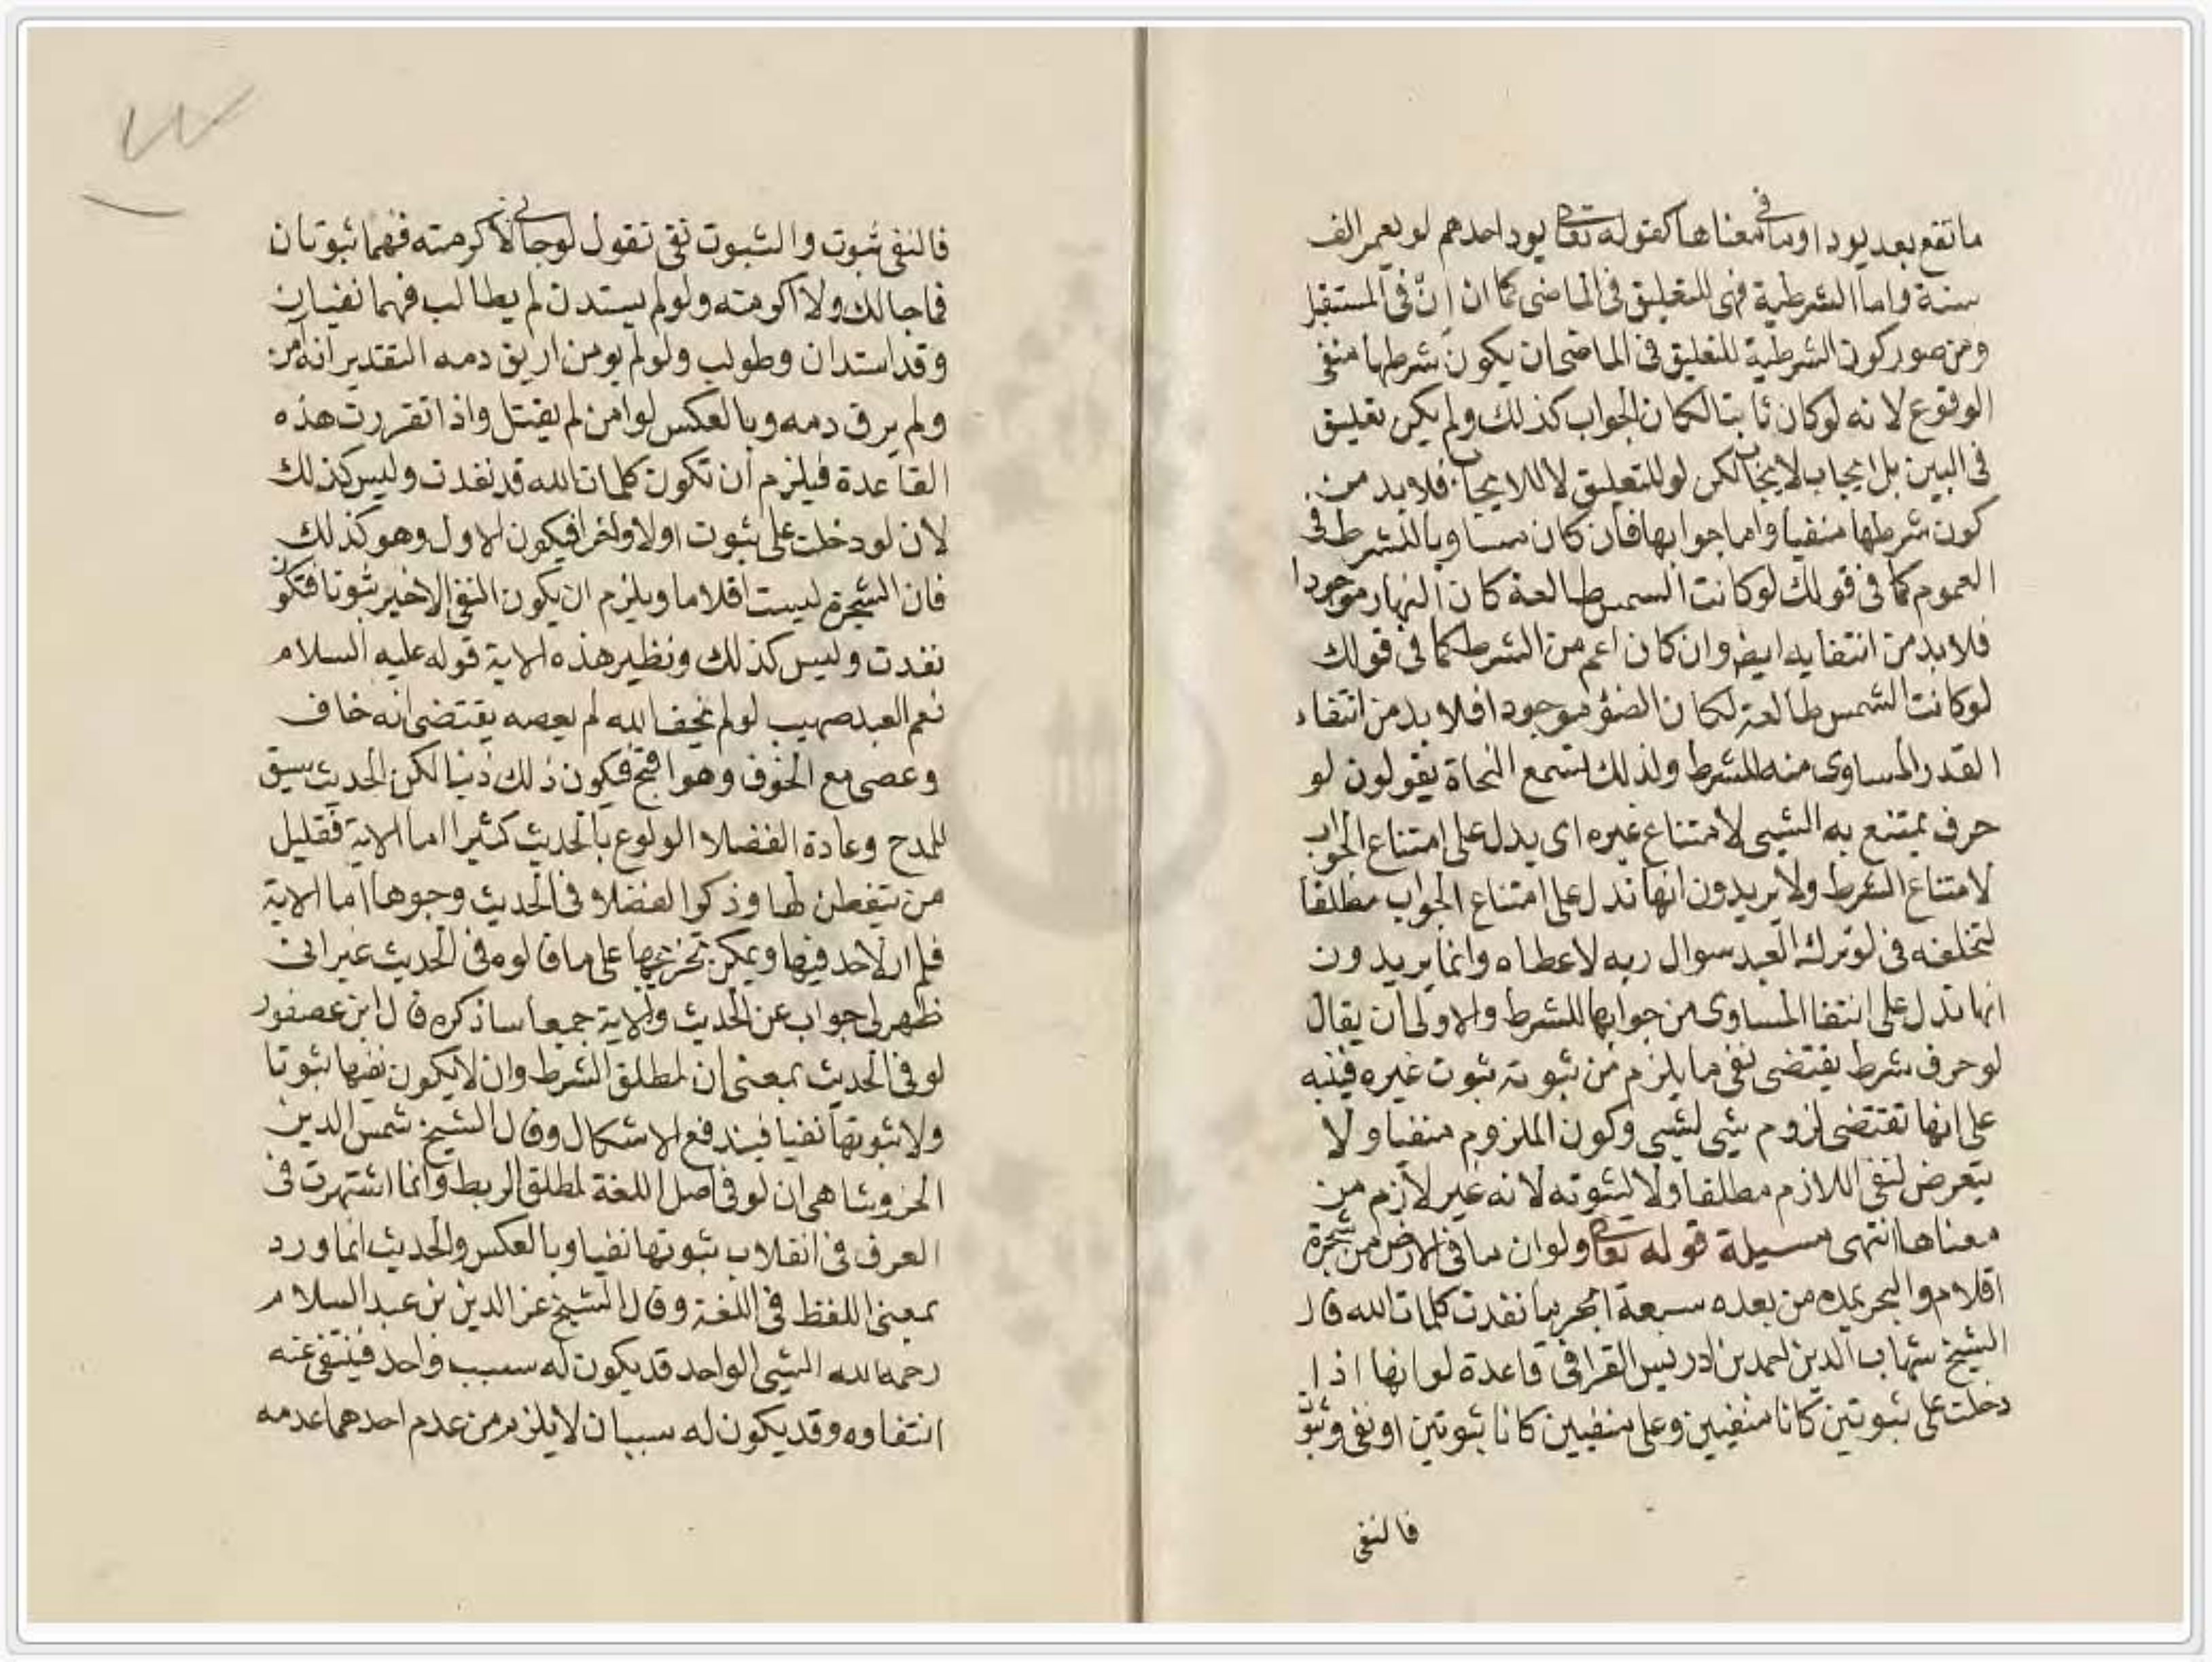 ما تقع بعد يود او ما فى معناها كقوله تعالى يود احدهم لو يعمر الف
سنة واما الشرطية فهى للتعليق فى الماضى كما ان اِنْ فى المستقبل
ومن صور كون الشرطية للتعليق فى الماضى ان يكون شرطها منفى
الوقوع لانه لو كان ثابتا لكان الجواب كذلك ولم يكن تعليق
فى البين بل ايجاب لايجاب لكن لو للتعليق لا للايجاب فلا بد من
كون شرطها منفيا واما جوابها فان كان مساويا للشرط فى
العموم كما فى قولك لو كانت الشمس طالعة كان النهار موجودا
فلا بد من انتفايه ايضا وان كان اعم من الشرط كما فى قولك
لو كانت الشمس طالعة لكان الضوء موجودا فلا بد من انتفاء
القدر المساوى منه للشرط ولذلك تسمع النحاة يقولون لو
حرف يمتنع به الشيى لامتناع غيره اى يدل على امتناع الجواب
لامتناع الشرط ولا يريدون انها تدل على امتناع الجواب مطلقا
لتخلفه فى لو ترك العبد سوال ربه لاعطاه وانما يريدون
انها تدل على انتفا المساوى من جوابها للشرط والاولى ان يقال
لو حرف شرط يقتضى نفى ما يلزم من ثبوته ثبوت غيره فينبه
على انها تقتضى لزوم شيى لشيى وكون الملزوم منفيا ولا
يتعرض لنفى اللازم مطلقا ولا لثبوته لانه غير لازم من
معناها انتهى مسيلة قوله تعالى ولو ان ما فى الارض من شجرة
اقلام والبحر يمده من بعده سبعة ابحر ما نفدت كلمات الله قال
الشيخ شهاب الدين احمد بن ادريس القرافى قاعدة لو انها اذا
دخلت على ثبوتين كانا منفيين وعلى منفيين كانا ثبوتين او نفى وثبوت
فالنفى
فالنفى ثبوت والثبوت نفى تقول لو جانى لاكرمته فهما ثبوتان
فما جاك ولا اكرمته ولو لم يستدن لم يطالب فهما نفيان
وقد استدان وطولب ولو لم يومن اريق دمه التقدير انه امن
ولم يرق دمه وبالعكس لو امن لم يقتل واذا تقررت هذه
القاعدة فيلزم ان تكون كلمات الله قد نفدت وليس كذلك
لان لو دخلت على ثبوت اولا واخرا فيكون الاول وهو كذلك
فان الشجرة ليست اقلاما ويلزم ان يكون النفى الاخير ثبوتا فتكون
نفدت وليس كذلك ونظير هذه الاية قوله عليه السلام
نعم العبد صهيب لو لم يخف الله لم يعصه يقتضى انه خاف
وعصى مع الخوف وهو اقبح فيكون ذلك ذنبا لكن الحديث سيق
للمدح وعادة الفضلا الولوع بالحديث كثيرا اما الاية فقليل
من يتفطن لها وذكر الفضلا فى الحديث وجوها اما الاية
فلم ار لاحد فيها ويمكن تخريجها على ما قالوه فى الحديث غير انى
ظهر لى جواب عن الحديث والاية جميعا ساذكره قال ابن عصفور
لو فى الحديث بمعنى ان لمطلق الشرط وان لا يكون نفيها ثبوتا
ولا ثبوتها نفيا فيندفع الاشكال وقال الشيخ شمس الدين
الخروشاهى ان لو فى اصل اللغة لمطلق الربط وانما اشتهرت فى
العرف فى انقلاب ثبوتها نفيا وبالعكس والحديث انما ورد
بمعنى اللفظ فى اللغة وقال الشيخ عز الدين بن عبد السلام
رحمه الله الشيى الواحد قد يكون له سبب واحد فينتفى عنه
انتفاوه وقد يكون له سببان لا يلزم من عدم احدهما عدمه